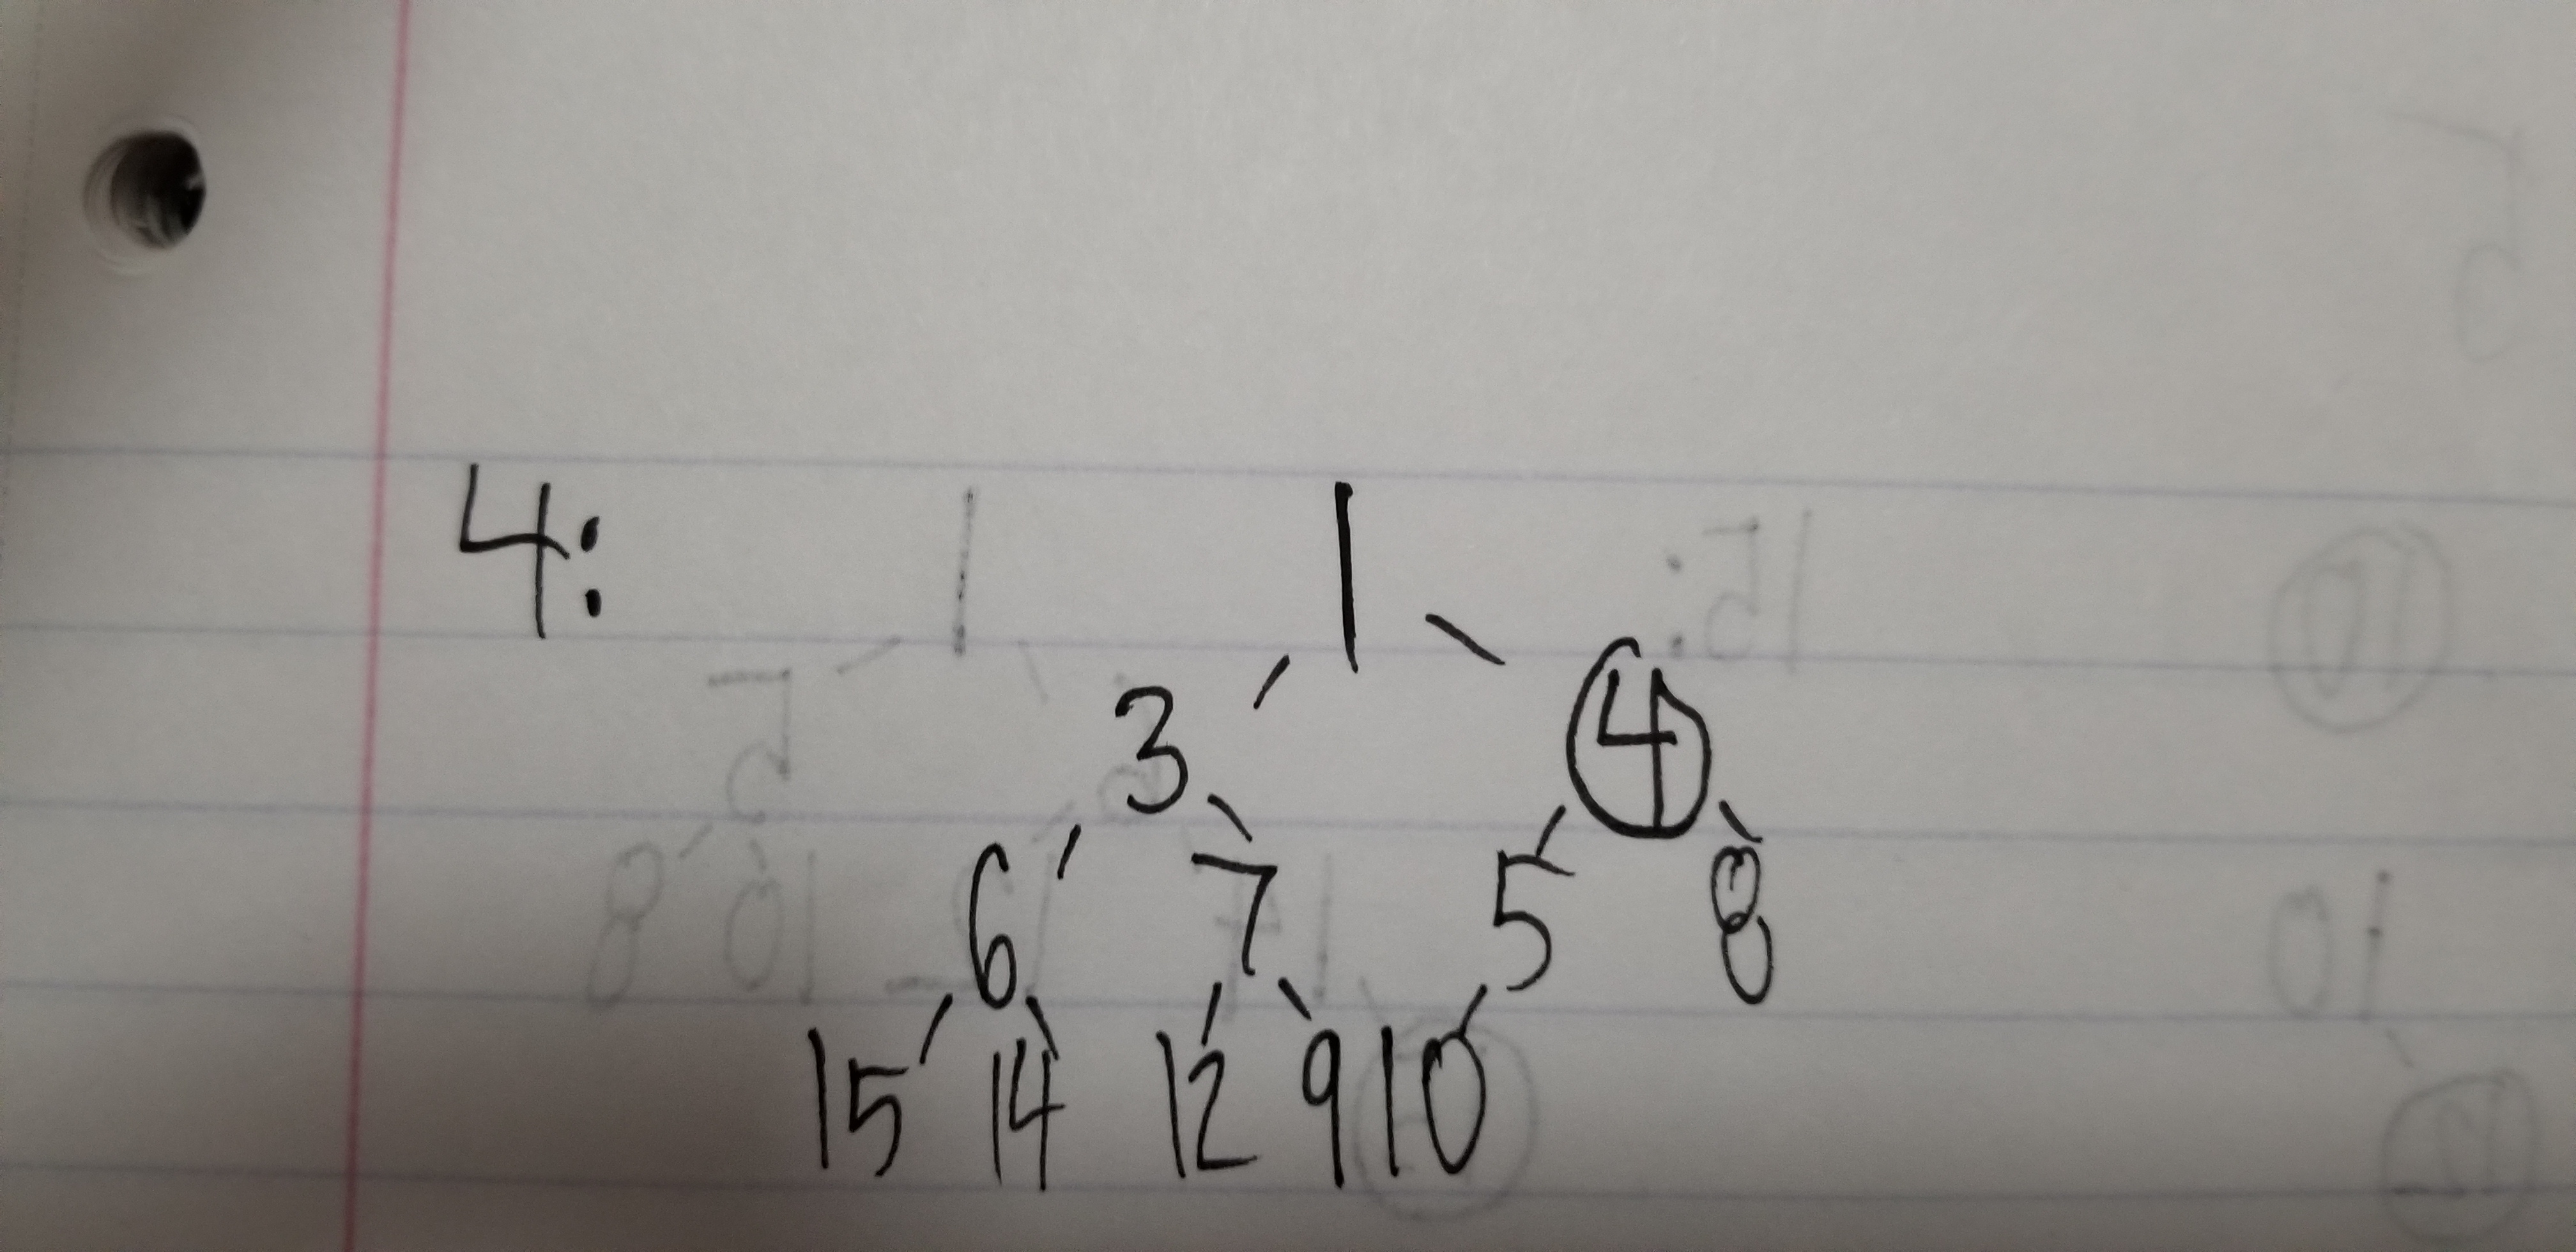 4: 1
3 4
6 7 5 8
15 14 12 9 10